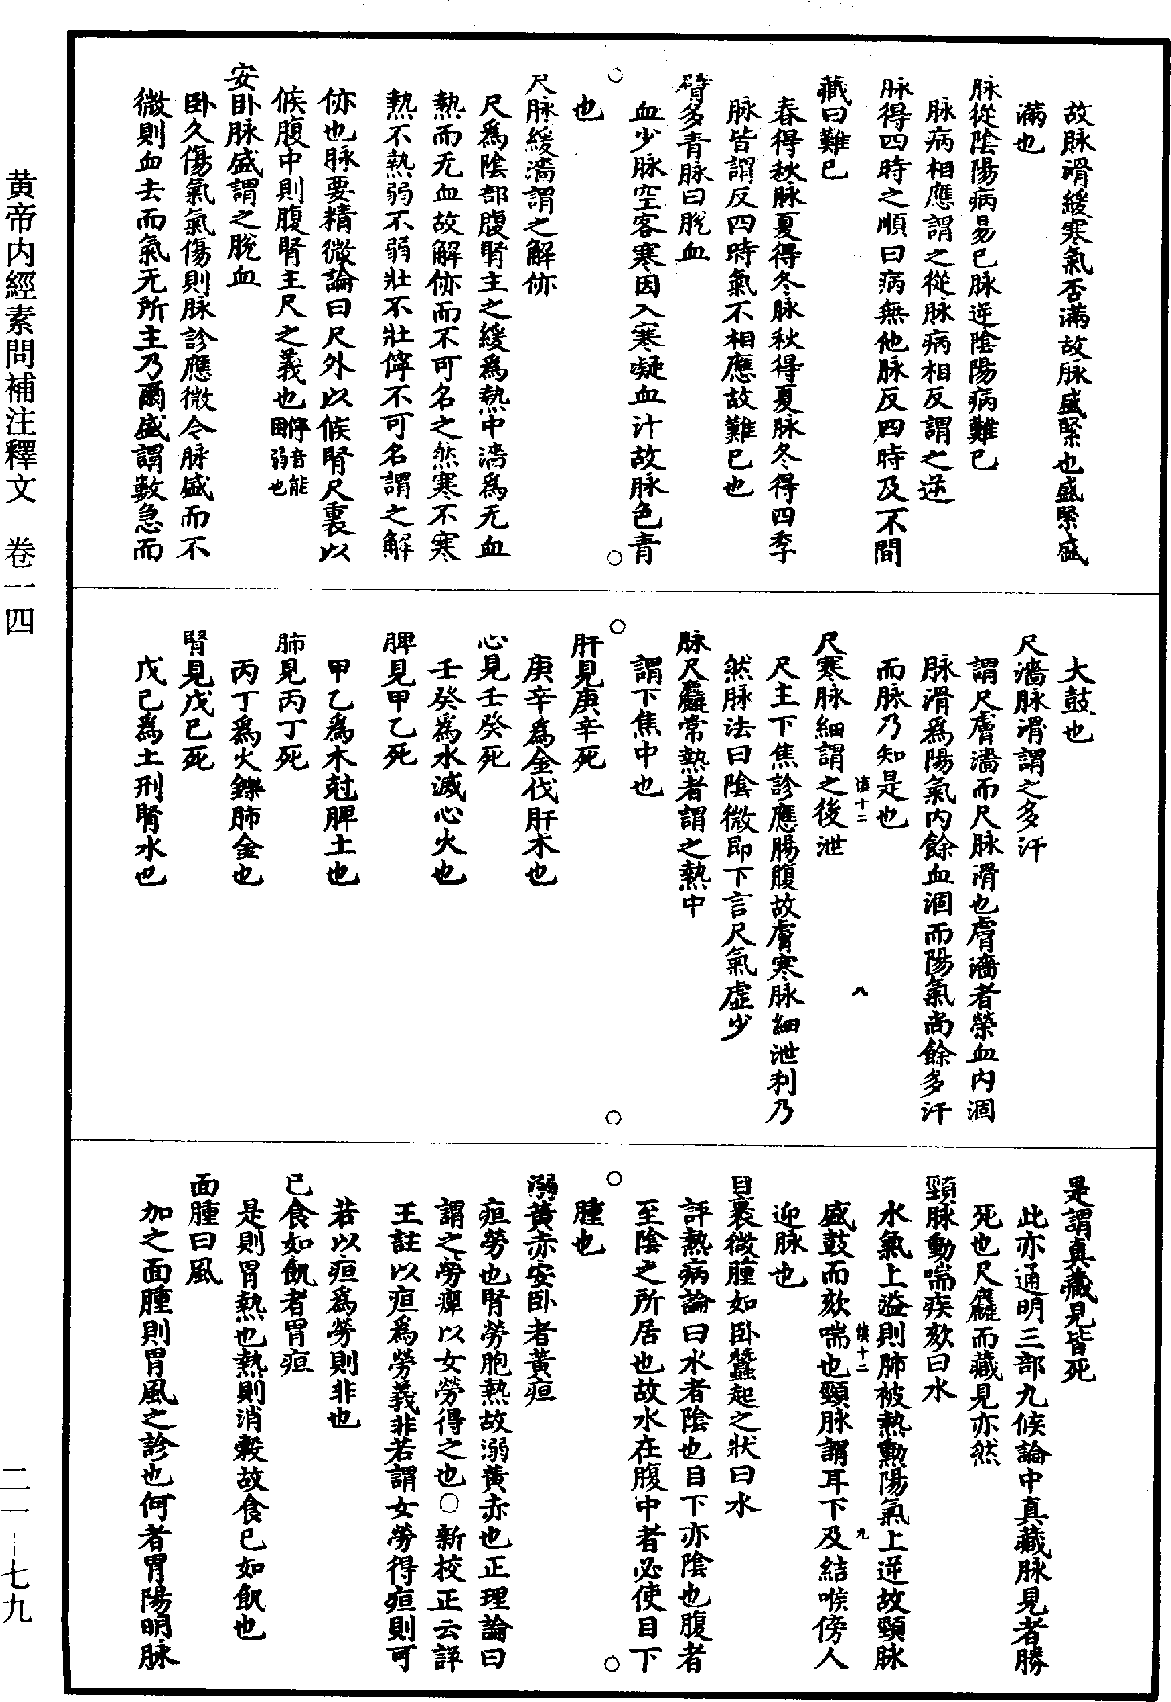 故脉滑緩寒氣否滿故脉盛緊也盛緊盛
滿也
脉從陰陽病易已脉逆陰陽病難已
脉病相應謂之從脉病相反謂之逆
脉得四時之順曰病無他脉反四時及不間
藏曰難已
春得秋脉夏得冬脉秋得夏脉冬得四季
脉皆謂反四時氣不相應故難已也
臂多青脉曰脫血
血少脉空客寒因入寒凝血汁故脉色青
也
尺脉緩濇謂之解㑊
尺爲陰部腹腎主之緩爲熱中濇爲无血
熱而无血故解㑊而不可名之然寒不寒
熱不熱弱不弱壯不壯儜不可名謂之解
㑊也脉要精微論曰尺外以候腎尺裏以
候腹中則腹腎主尺之義也儜音能
困弱也
安卧脉盛謂之脫血
卧久傷氣氣傷則脉診應微今脉盛而不
微則血去而氣无所主乃爾盛謂數急而
大鼓也
尺濇脉滑謂之多汗
謂尺膚濇而尺脉滑也膚濇者榮血內涸
脉滑爲陽氣內餘血涸而陽氣尚餘多汗
而脉乃知是也
尺寒脉細謂之後泄
尺主下焦診應腸腹故膚寒脉細泄利乃
然脉法曰陰微即下言尺氣虛少
脉尺麤常熱者謂之熱中
謂下焦中也
肝見庚辛死
庚辛爲金伐肝木也
心見壬癸死
壬癸爲水滅心火也
脾見甲乙死
甲乙爲木尅脾土也
肺見丙丁死
丙丁爲火鑠肺金也
腎見戊已死
戊已爲土刑腎水也
是謂真藏見皆死
此亦通明三部九候論中真藏脉見者勝
死也尺麤而藏見亦然
頸脉動喘疾欬曰水
水氣上溢則肺被熱勲陽氣上逆故頸脉
盛鼓而欬喘也頸脉謂耳下及結喉傍人
迎脉也
目裹微腫如卧蠶起之狀曰水
評熱病論曰水者陰也目下亦陰也腹者
至陰之所居也故水在腹中者必使目下
腫也
溺黃赤安卧者黃疸
疸勞也腎勞胞熱故溺黃赤也正理論曰
謂之勞癉以女勞得之也○新校正云詳
王註以疸爲勞義非若謂女勞得疸則可
若以疸爲勞則非也
已食如飢者胃疸
是則胃熱也熱則消穀故食已如飢也
面腫曰風
加之面腫則胃風之診也何者胃陽明脉
黃帝內經素問補注釋文　卷一四
二一—七九